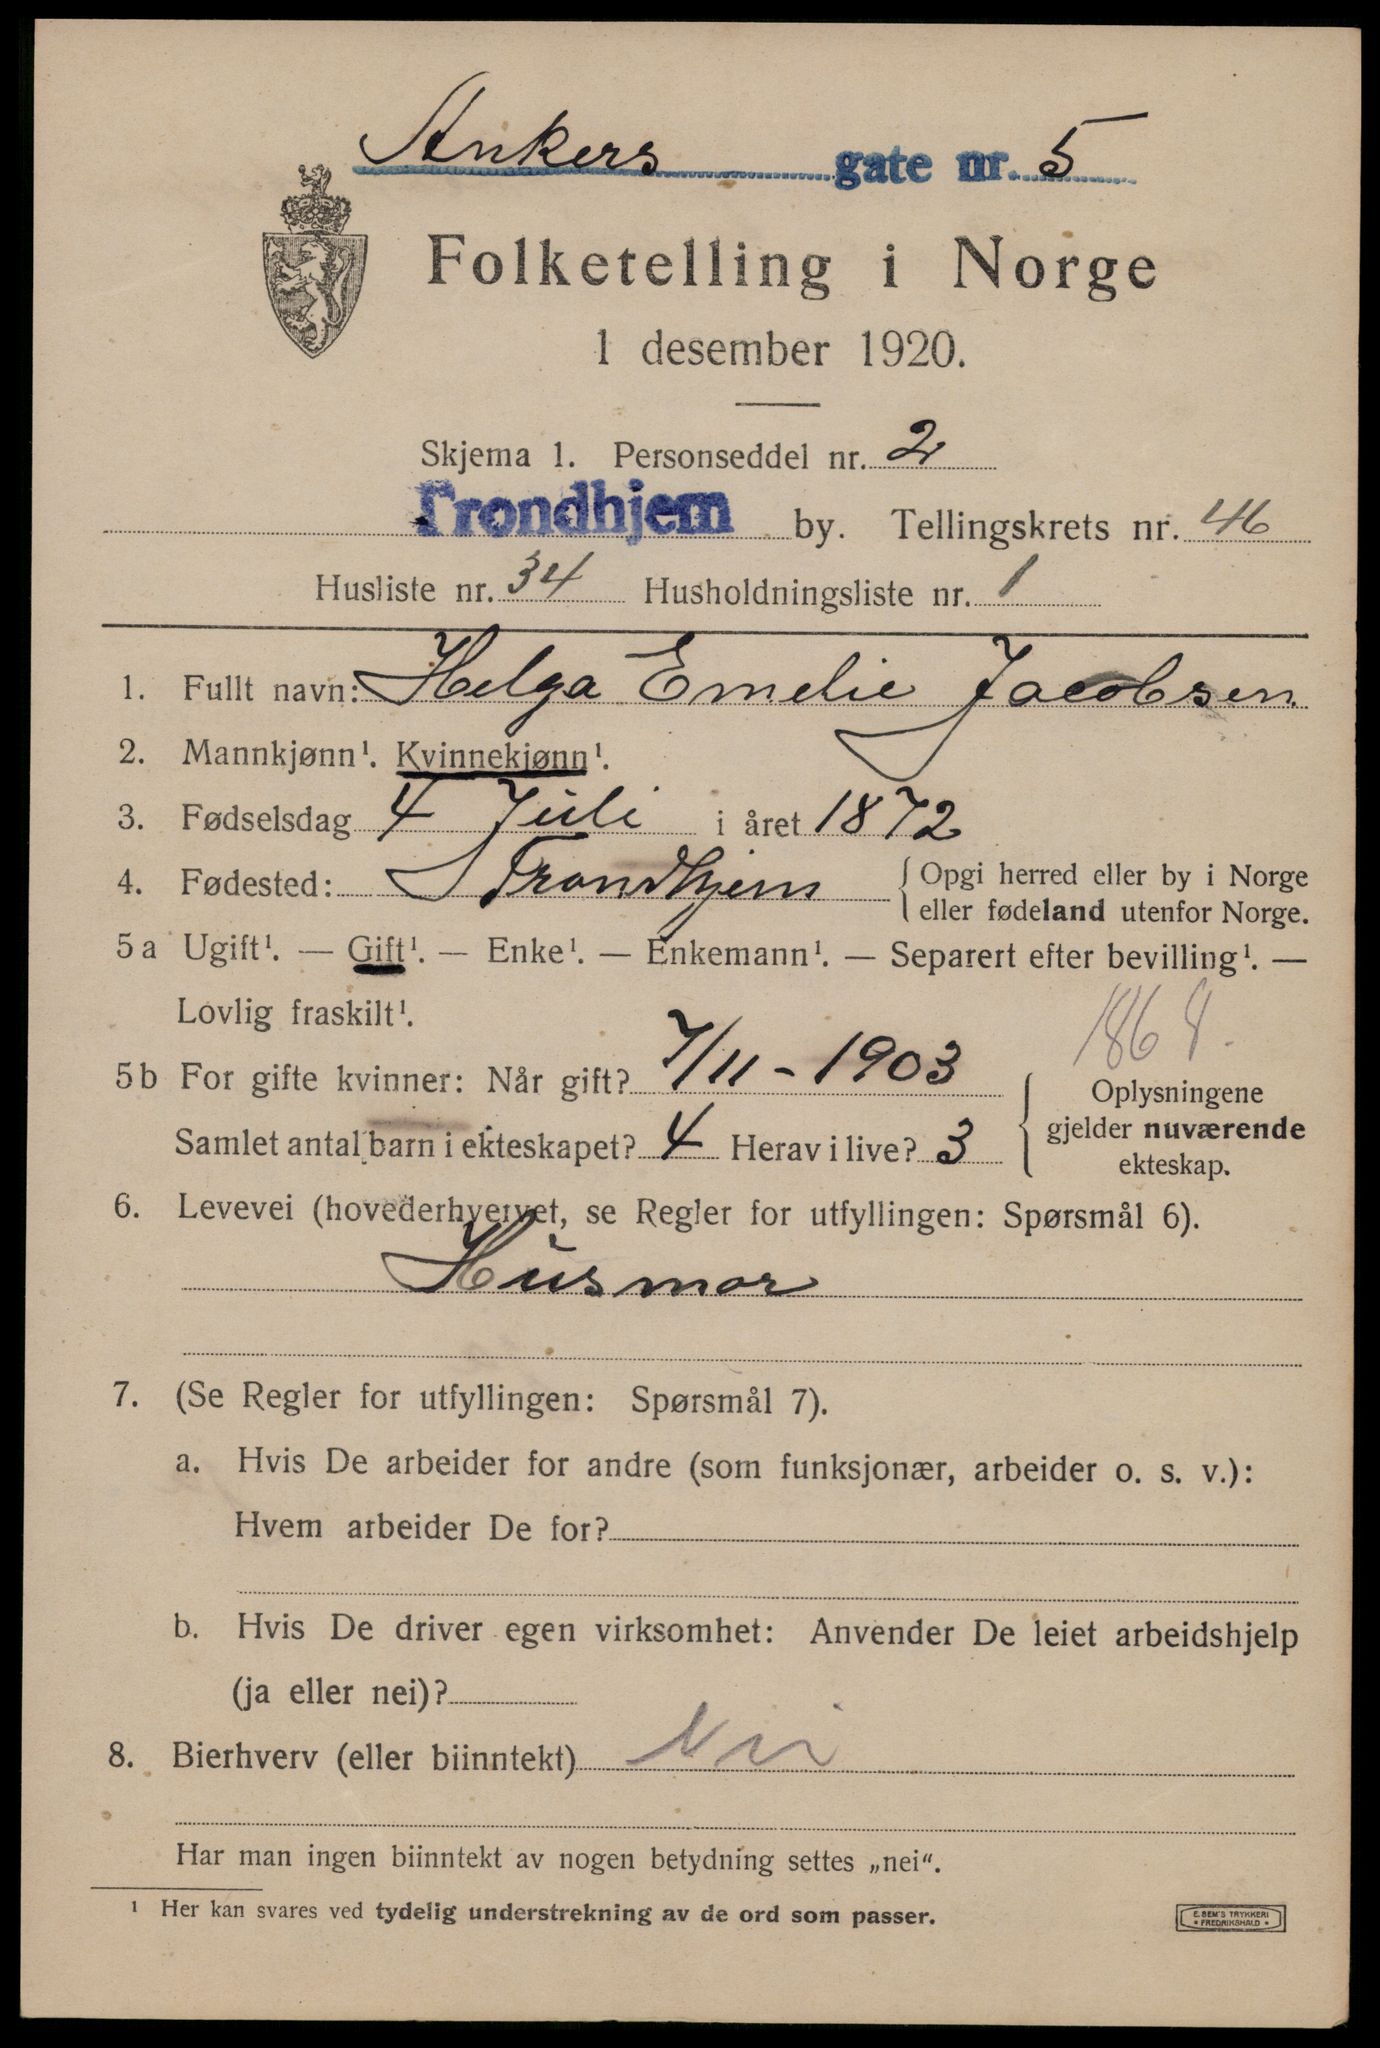 Ankers gate nr. 5
Folketelling i Norge
1 desember 1920.
Skjema 1. Personseddel nr. 2
Trondhjem by. Tellingskrets nr. 46
Husliste nr. 34 Husholdningsliste nr. 1
1. Fullt navn: Helga Emelie Jacobsen.
2. Mannkjønn¹. Kvinnekjønn¹.
3. Fødselsdag 4 Juli i året 1872
4. Fødested: Trondhjem { Opgi herred eller by i Norge
eller fødeland utenfor Norge.
5a Ugift¹. — Gift¹. — Enke¹. — Enkemann¹. — Separert efter bevilling¹. —
Lovlig fraskilt¹.
5b For gifte kvinner: Når gift? 7/11 - 1903
Samlet antal barn i ekteskapet? 4 Herav i live? 3
Oplysningene
gjelder nuværende
ekteskap.
6. Levevei (hovederhvervet, se Regler for utfyllingen: Spørsmål 6).
Husmor
7. (Se Regler for utfyllingen: Spørsmål 7).
a. Hvis De arbeider for andre (som funksjonær, arbeider o. s. v.):
Hvem arbeider De for?
b. Hvis De driver egen virksomhet: Anvender De leiet arbeidshjelp
(ja eller nei)?
8. Bierhverv (eller biinntekt) Nei
Har man ingen biinntekt av nogen betydning settes „nei“.
¹ Her kan svares ved tydelig understrekning av de ord som passer.
E. SEM'S TRYKKERI
* FREDRIKSHALD *